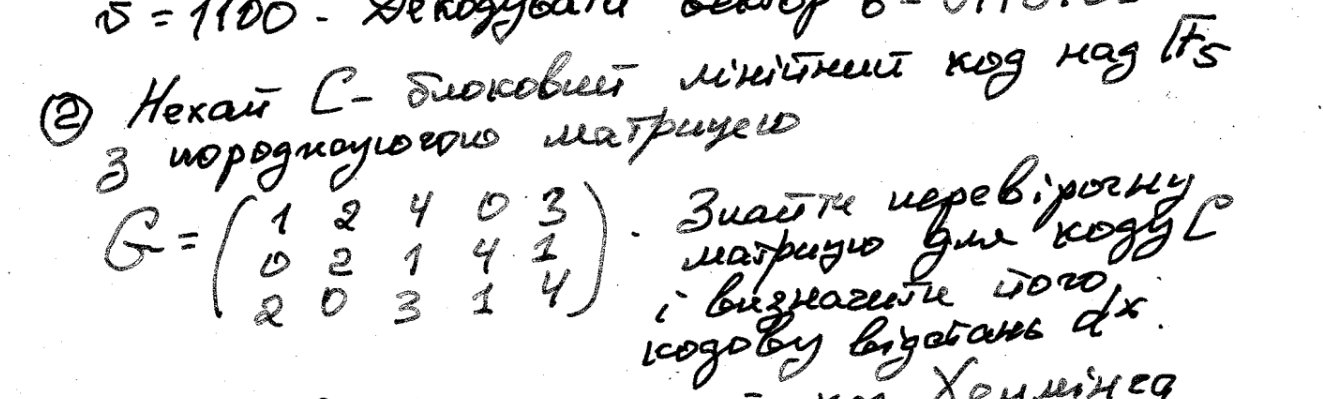 v̄ = 1100. Декодувати вектор
② Нехай C - блоковий лінійний код над F₅
з породжуючою матрицею
G = ( 1 2 4 0 3
0 2 1 4 1
2 0 3 1 4 ). Знайти перевірочну
матрицю для коду C
і визначити його
кодову відстань d*.
Хеммінга